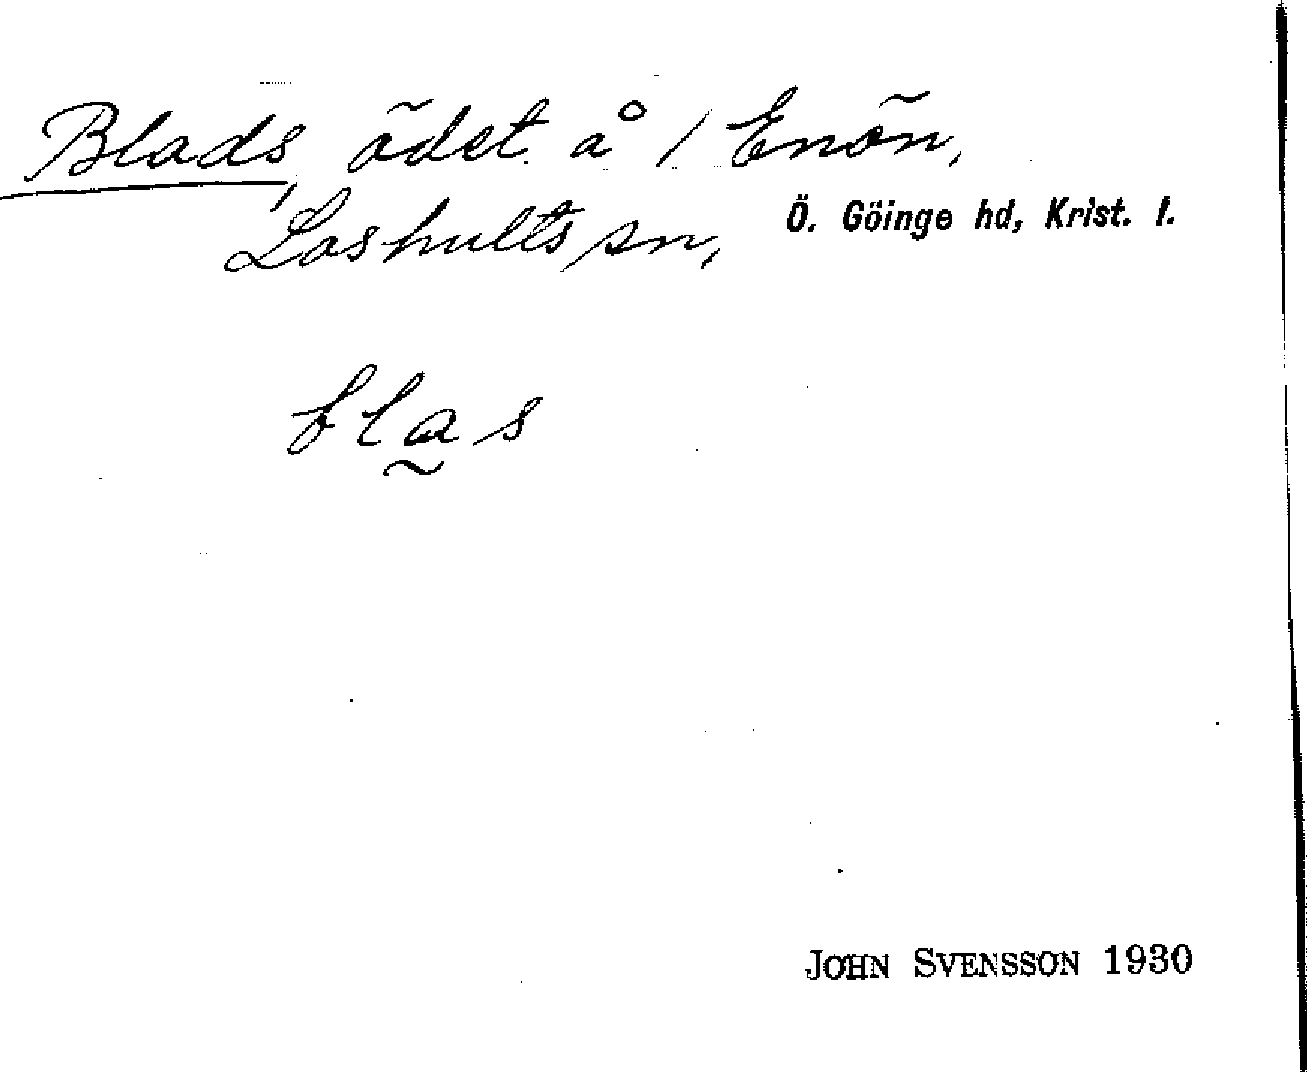 Blads, ödet. å 1 Enön,
Loshults sn, Ö. Göinge hd, Krist. l.
blas
JOHN SVENSSON 1930